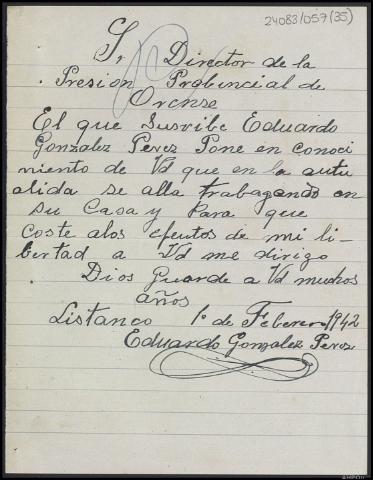 24083/057(35)
Sr Director de la
Presion Probincial de
Orense
El que Suscribe Eduardo
Gonzalez Perez Pone en conoci
miento de Vd que en la autu
alida se alla trabagando en
su Casa y Para que
coste alos efutos de mi li-
bertad a Vd me dirigo
Dios Guarde a Vd muchos
años
Listanco 1º de Feberero 1942
Eduardo Gonzalez Perez